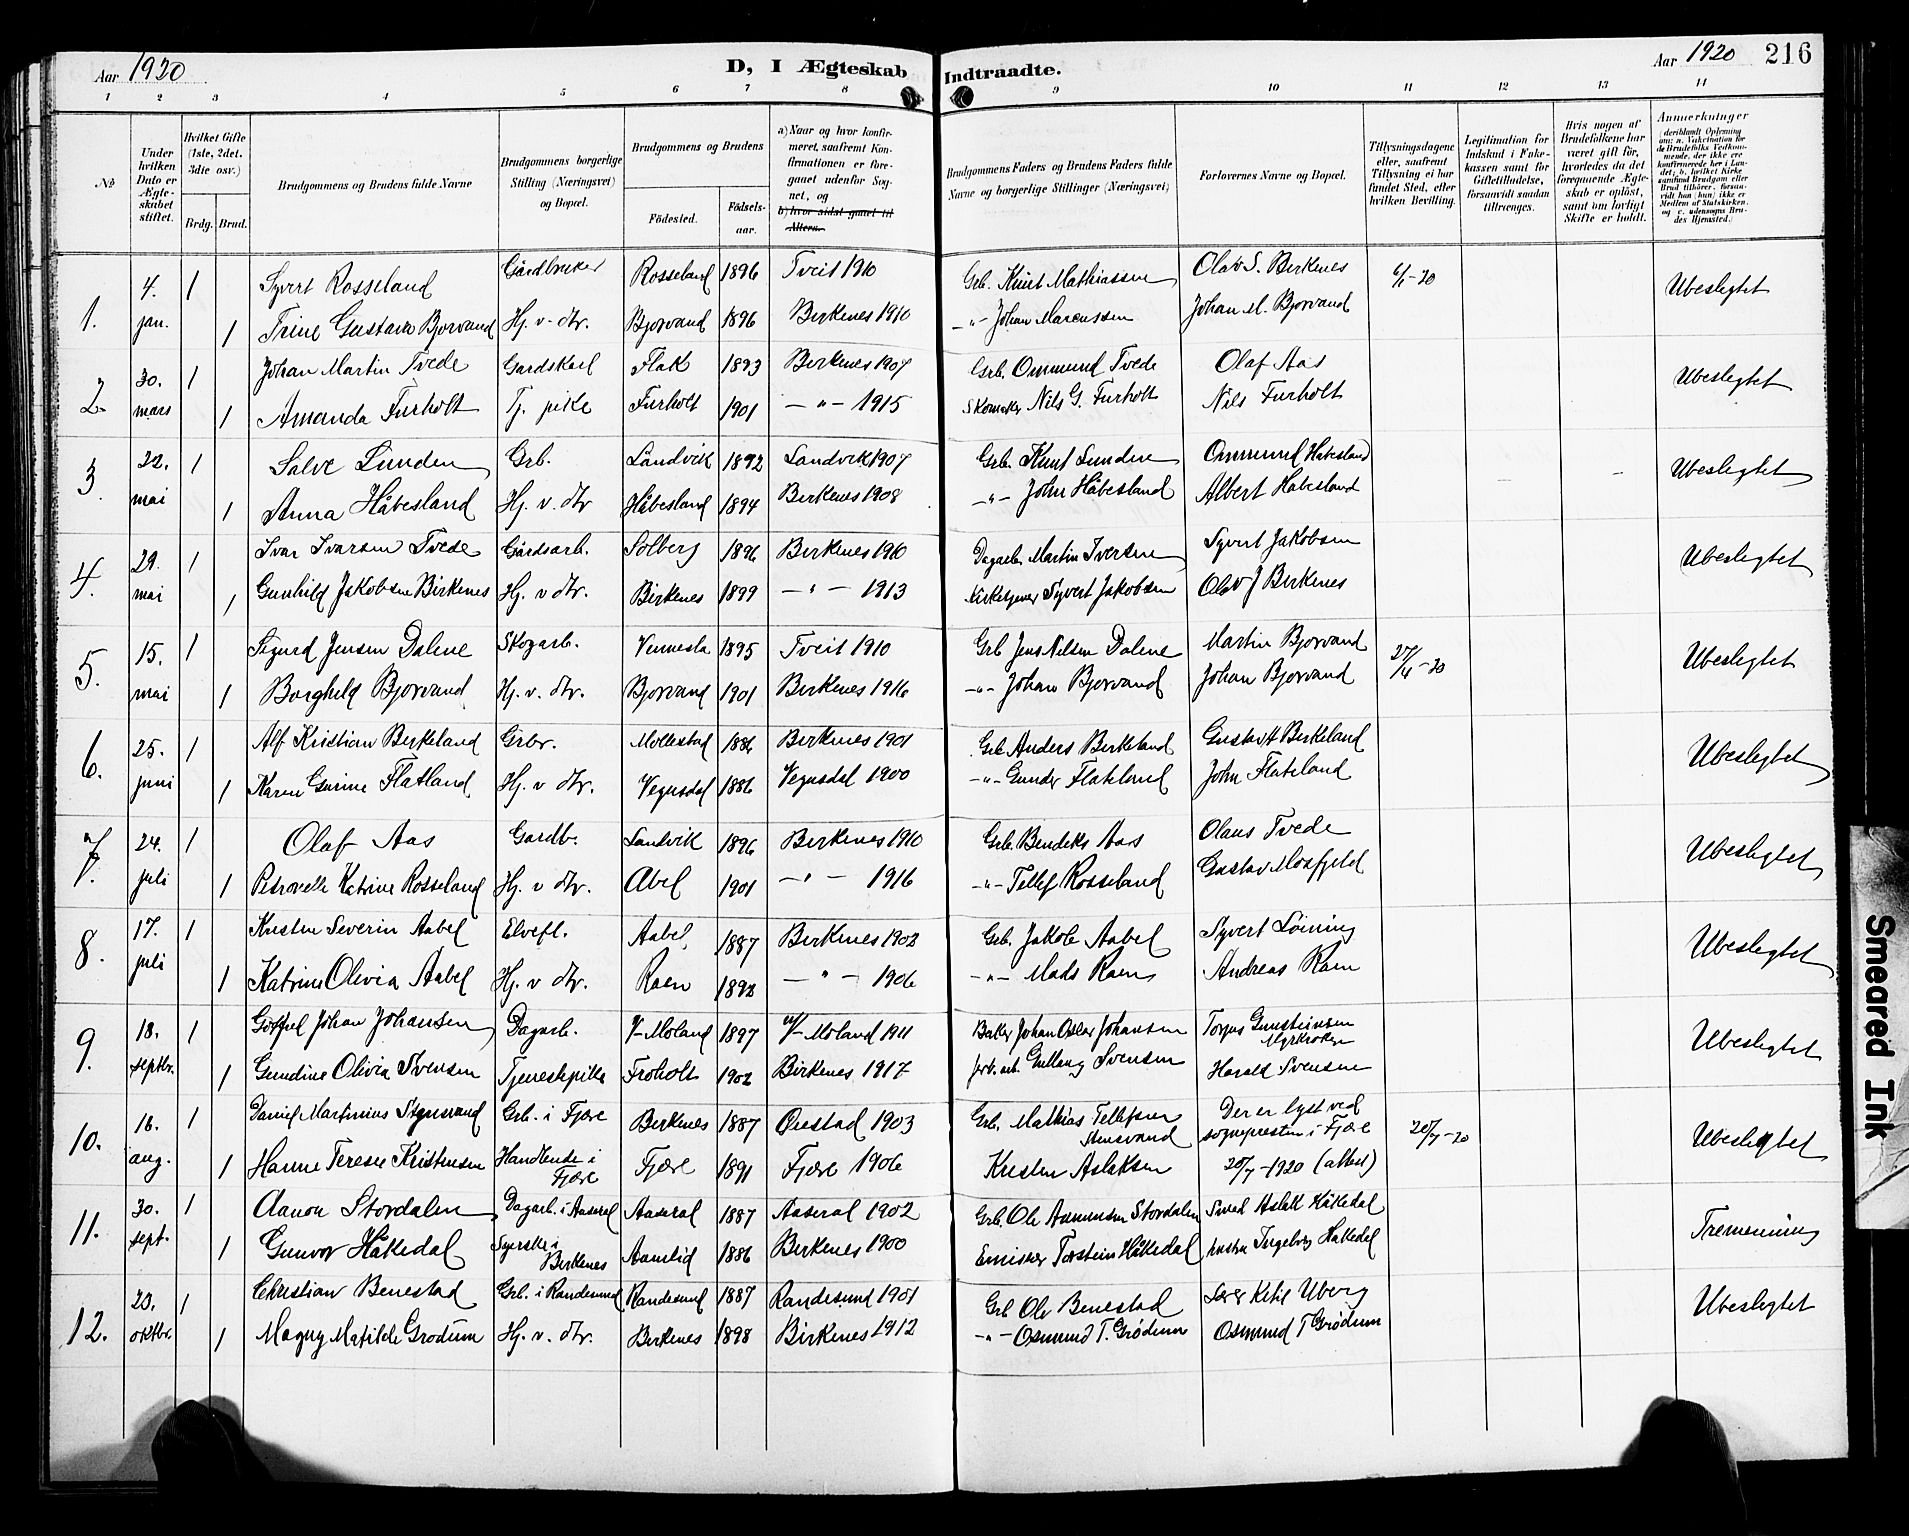 Aar 1920
D, I Ægteskab Indtraadte.
Aar 1920 216
1 2 3 4 5 6 7 8 9 10 11 12 13 14
No
Under hvilken Dato er Ægteskabet stiftet.
Hvilket Gifte (1ste, 2det, 3die osv.)
Brdg. Brud.
Brudgommens og Brudens fulde Navne
Brudgommens borgerlige Stilling (Næringsvei) og Bopæl.
Brudgommens og Brudens
Födested. Födsels-aar.
a) Naar og hvor konfirmeret, saafremt Konfirmationen er foregaaet udenför Sognet, og
b) hvor sidst gaaet til Alters.
Brudgommens Faders og Brudens Faders fulde Navne og borgerlige Stillinger (Næringsvei)
Forlovernes Navne og Bopæl.
Tillysningsdagene eller, saafremt Tillysning ei har fundet Sted, efter hvilken Bevilling.
Legitimation for Indskud i Enkekassen samt for Giftetilladelse, forsaavidt saadan tiltrænges.
Hvis nogen af Brudefolkene har været gift för, hvorledes da det foregaaende Ægteskab er oplöst, samt om lovligt Skifte er holdt.
Anmerkninger
1. 4. jan. 1 Syvert Rosseland Gårdbruker Rosseland 1896 Tveit 1910 Grb. Knut Mathiassen Olav S. Birkenes 6/1-20 Ubeslegtet
1 Trine Gustava Bjorvand Hj. v. dtr. Bjorvand 1896 Birkenes 1910 -"- Johan Marcussen Johan M. Bjorvand
2. 30. mars 1 Johan Martin Tvede Gardskarl Flak 1893 Birkenes 1907 Grb. Ommund Tvede Olaf Aas Ubeslegtet
1 Amanda Furholt Tj. pike Furholt 1901 -"- 1915 Skomaker Nils G. Furholt Nils Furholt
3. 22. mai 1 Salve Lunden Grb. Landvik 1892 Landvik 1907 Grb. Knut Lunden Ommund Håbesland Ubeslegtet
1 Anna Håbesland Hj. v. dtr Håbesland 1894 Birkenes 1908 -"- John Håbesland Albert Håbesland
4. 29. mai 1 Ivar Ivarsen Tvede Gårdsarb. Solberg 1896 Birkenes 1910 Dagarb. Martin Iversen Syvert Jakobsen Ubeslegtet
1 Gunhild Jakobsen Birkenes Hj. v dtr. Birkenes 1899 -"- 1913 Kirketjener Syvert Jakobsen Olav J Birkenes
5. 15. mai 1 Sigurd Jensen Dalene Skogarb. Vennesla 1895 Tveit 1910 Grb Jens Nilsen Dalene Martin Bjorvand 27/4-20 Ubeslegtet
1 Borghild Bjorvand Hj. v. dtr. Bjorvand 1901 Birkenes 1916 -"- Johan Bjorvand Johan Bjorvand
6. 25. juni 1 Alf Kristian Birkeland Grbr. Mollestad 1886 Birkenes 1901 Grb Anders Birkeland Gustav Birkeland Ubeslegtet
1 Karen Gurine Flatland Hj. v dtr. Vegusdal 1886 Vegusdal 1900 -"- Gunder Flateland John Flateland
7. 24. juli 1 Olaf Aas Gardb. Landvik 1896 Birkenes 1910 Grb. Bendiks Aas Olaus Tvede Ubeslegtet
1 Petronelle Katrine Rosseland Hj. v dtr. Abel 1901 -"- 1916 -"- Tellef Rosseland Gustav Mosfjeld
8. 17. juli 1 Kristen Severin Aabel Elvefl. Aabel 1887 Birkenes 1902 Grb. Jakob Aabel Syvert Løining Ubeslegtet
1 Katrine Olivia Aabel Hj. v dtr. Raen 1892 -"- 1906 -"- Mads Raen Andreas Raen
9. 18. septbr. 1 Johan Johansen Dagarb. V-Moland 1897 V-Moland 1911 Baker Johan Oskar Johansen Torjus Gunsteinsen Myrkroken Ubeslegtet
1 Gundine Olivia Svensen Tjenestepike Froholt 1902 Birkenes 1917 Gullaug Svensen Harald Svensen
10. 16. aug. 1 Daniel Martinius Stensvand Grb. i Fjære Birkenes 1887 Øiestad 1903 Grb. Mathias Tellefsen Stensvand Der er lyst ved sognepresten i Fjære 20/7-20 Ubeslegtet
1 Hanne Terese Kristensen Handlende i Fjære Fjære 1891 Fjære 1906 Kristen Aslaksen 20/7-1920 (attest)
11. 30. sept. 1 Aanon Stordalen Dagarb. i Aaseral Aaseral 1887 Aaseral 1902 Grb. Ole Aanensen Stordalen Smed Aslak Håkedal Tremenning
1 Gunvor Håkedal Syerske i Birkenes Aamlid 1886 Birkenes 1900 Emissær Torstein Håkedal hustru Ingeborg Håkedal
12. 23. oktbr. 1 Christian Benestad Grb. i Randesund Randesund 1887 Randesund 1901 Grb Ole Benestad Lærer Ketil Uberg Ubeslegtet
1 Magny Matilde Grødum Hj. v. dtr. Birkenes 1898 Birkenes 1912 -"- Osmund T. Grødum Osmund T Grødum
Smeared Ink